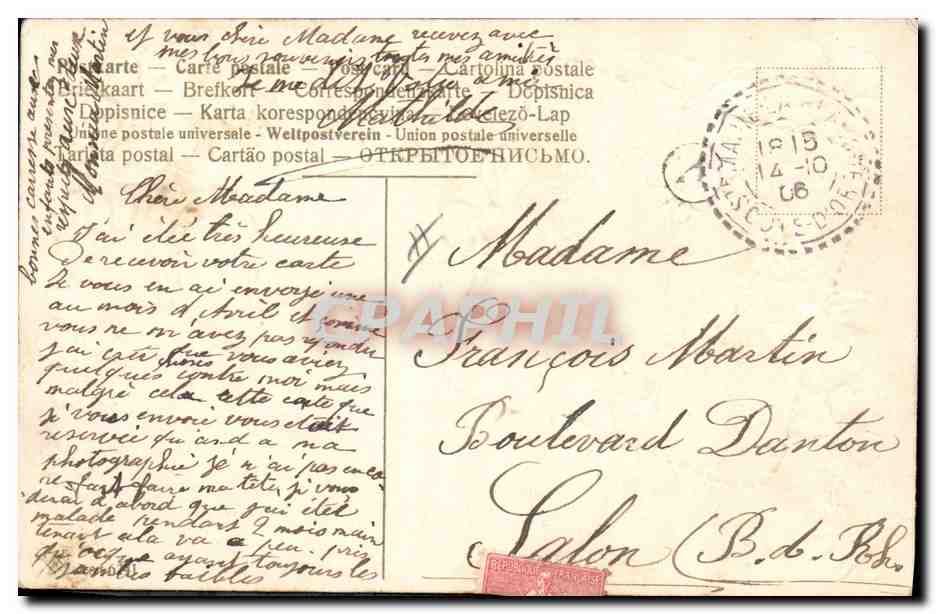 et vous chère Madame recevez avec
mes bons souvenirs toutes mes amitiés
Mathilde
Carte postale — Post card — Cartolina postale
Briefkaart — Brefkort — Correspondenzkarte — Dopisnica
Dopisnice — Karta korespondencyjna — Levelező-Lap
Union postale universelle - Weltpostverein - Union postale universelle
Tarjeta postal — Cartão postal — ОТКРЫТОЕ ПИСЬМО.
bonnes caresses aux
enfants
Monsieur Martin
Chère Madame
J'ai étée très heureuse
De recevoir votre carte
Je vous en ai envoyé une
au mois d'Avril et comme
vous ne m'avez pas répondu
j'ai cru que vous aviez
quelques contre moi mais
malgré cela cette carte que
je vous envoie vous etait
reservée quand a ma
photographie je n'ai pas encore
faire ma tete je vous
dirai d'abord que j'ai étée
malade pendant 2 mois main
tenant ala va a peu près
quoique ayant toujours les
jambes faibles
18 15
14 -10
06
Madame
François Martin
Boulevard Danton
Salon (B.d. Rh.
REPUBLIQUE FRANÇAISE
CPAPHIL